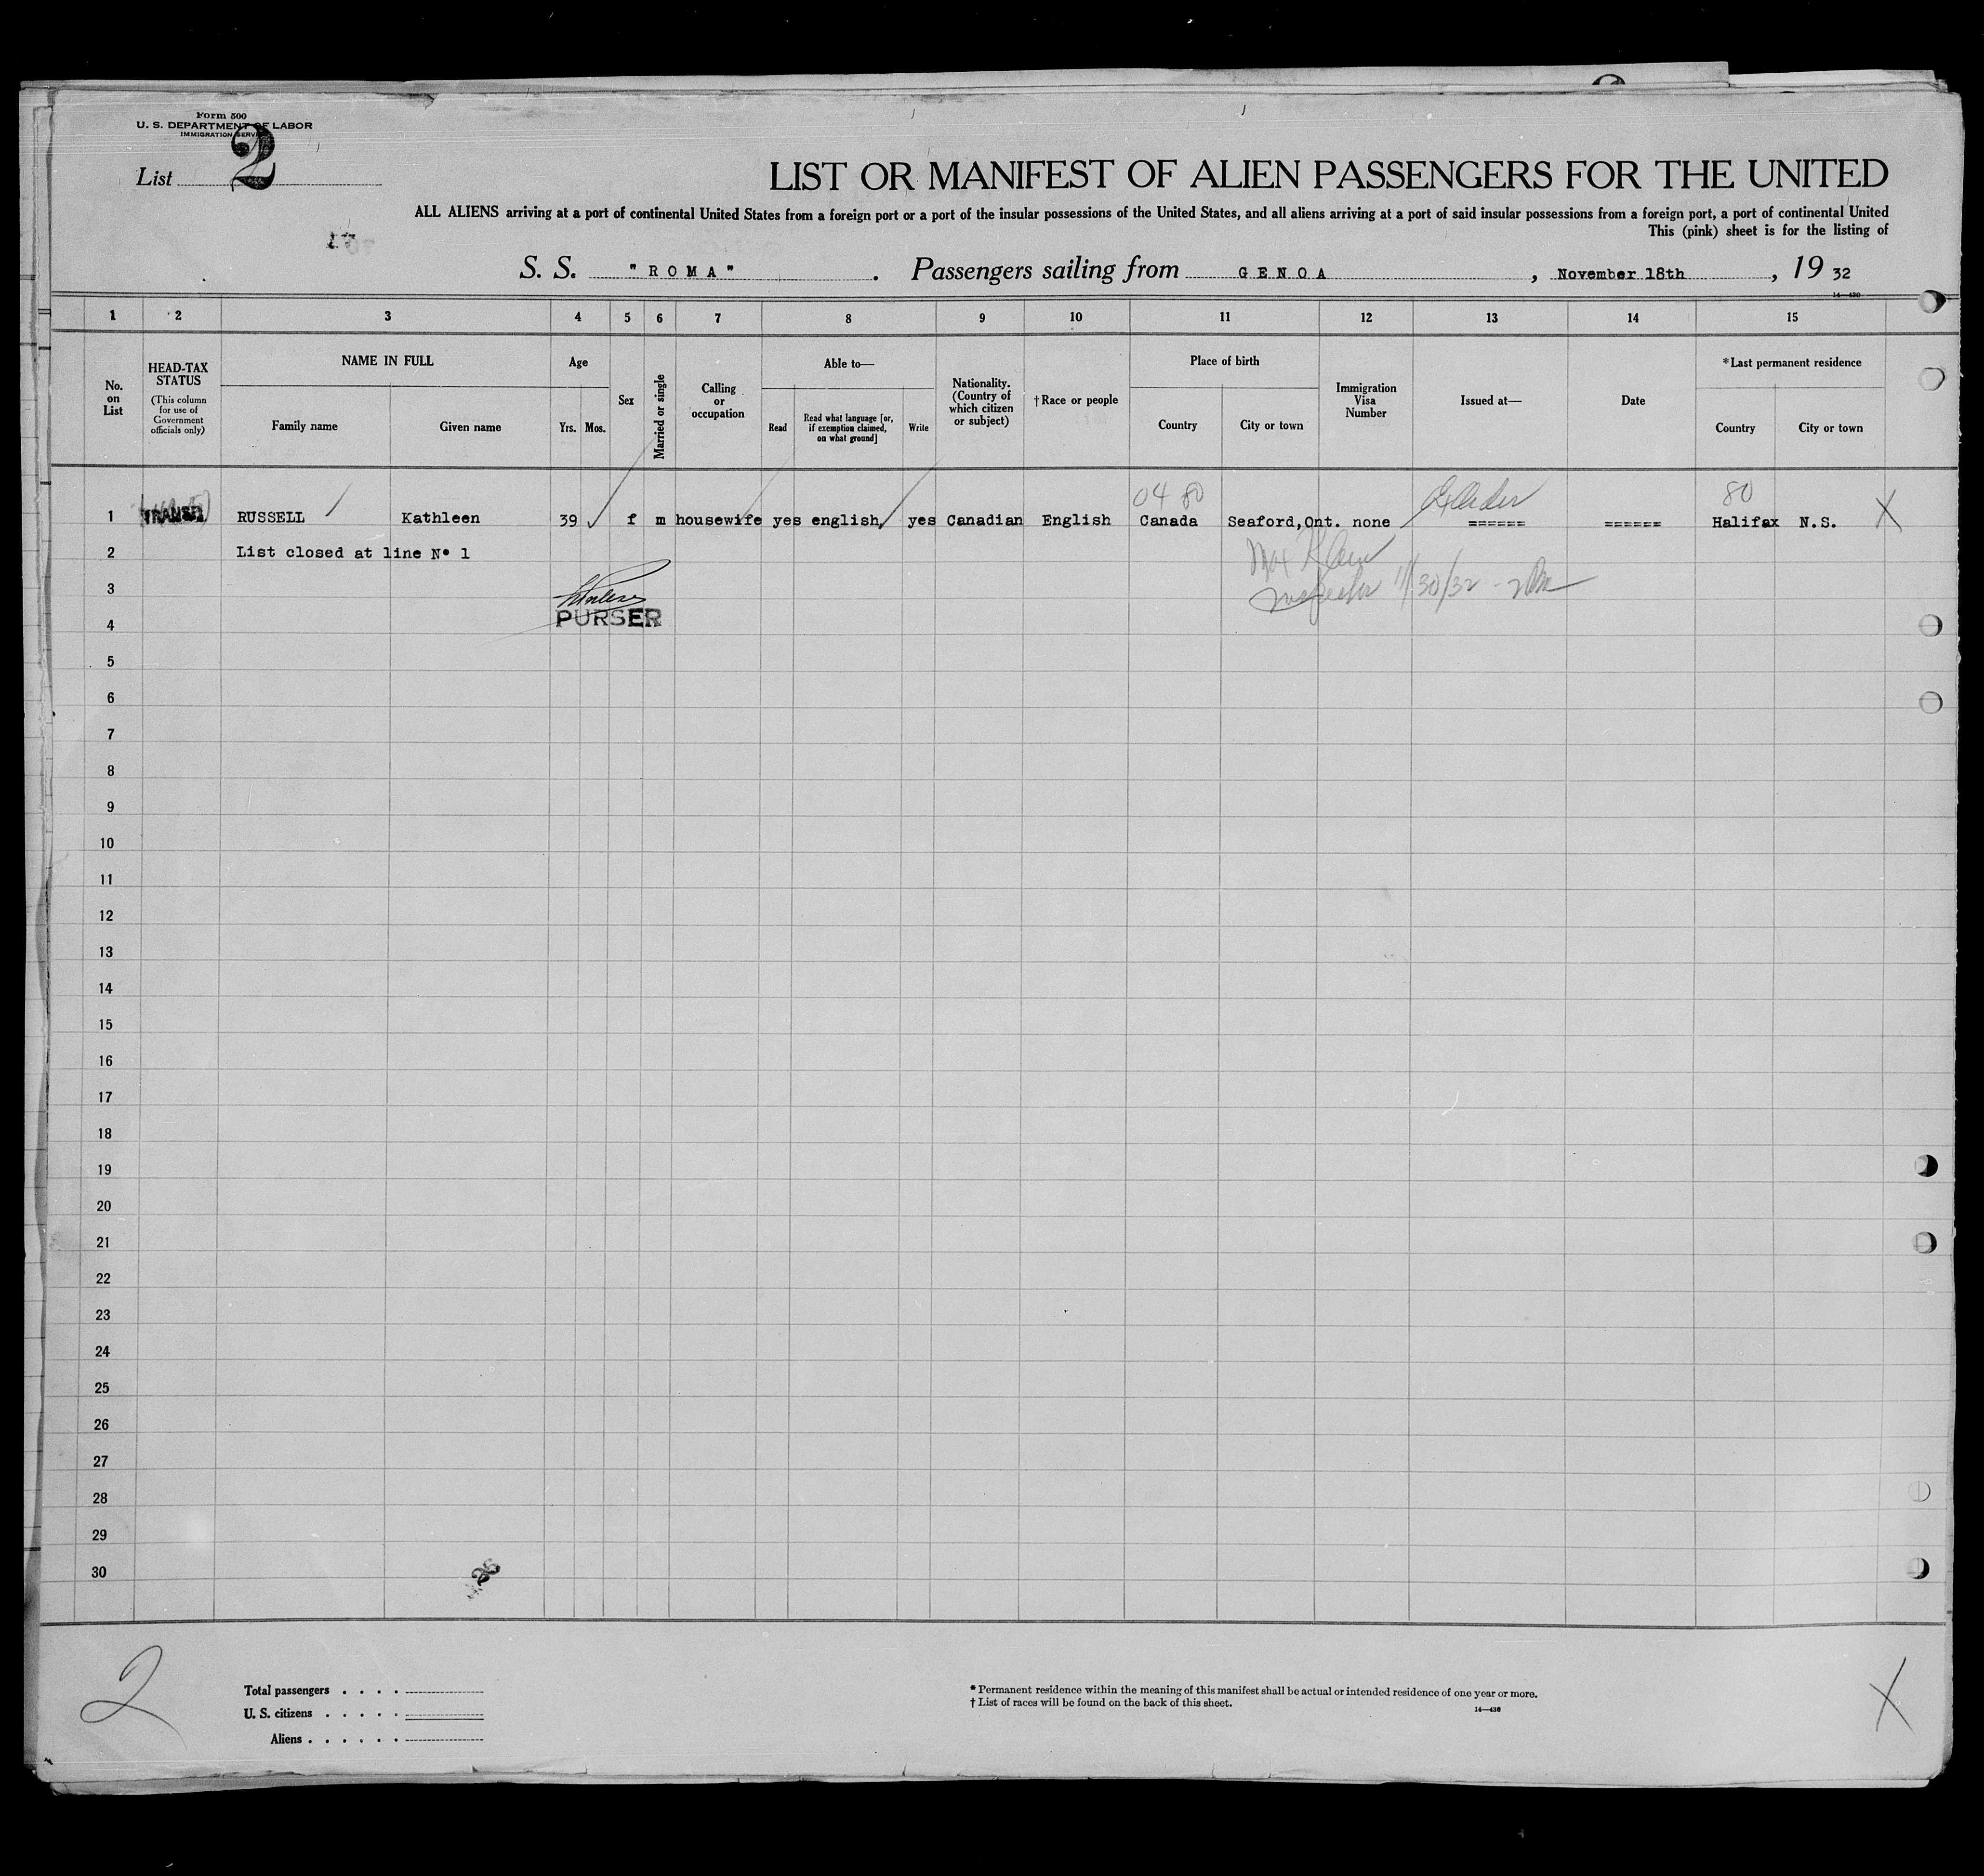 Form 500
U. S. DEPARTMENT OF LABOR
IMMIGRATION SERVICE
List 2
LIST OR MANIFEST OF ALIEN PASSENGERS FOR THE UNITED
ALL ALIENS arriving at a port of continental United States from a foreign port or a port of the insular possessions of the United States, and all aliens arriving at a port of said insular possessions from a foreign port, a port of continental United
This (pink) sheet is for the listing of
S. S. "ROMA". Passengers sailing from GENOA, November 18th, 19 32
14—430
1 2 3 4 5 6 7 8 9 10 11 12 13 14 15
No. on List
HEAD-TAX STATUS
(This column for use of Government officials only)
NAME IN FULL
Family name
Given name
Age
Yrs. Mos.
Sex
Married or single
Calling or occupation
Able to—
Read
Read what language [or, if exemption claimed, on what ground]
Write
Nationality. (Country of which citizen or subject)
†Race or people
Place of birth
Country
City or town
Immigration Visa Number
Issued at—
Date
*Last permanent residence
Country
City or town
04 80
80
1 TRANSIT RUSSELL Kathleen 39 f m housewife yes english, yes Canadian English Canada Seaford,Ont. none ====== ====== Halifax N.S. X
2 List closed at line Nº 1
Max Klein
3 Inspector 11/30/32
PURSER
4
5
6
7
8
9
10
11
12
13
14
15
16
17
18
19
20
21
22
23
24
25
26
27
28
29
30
2
Total passengers . . . .
U. S. citizens . . . . .
Aliens . . . . . .
* Permanent residence within the meaning of this manifest shall be actual or intended residence of one year or more.
† List of races will be found on the back of this sheet.
14—430
X